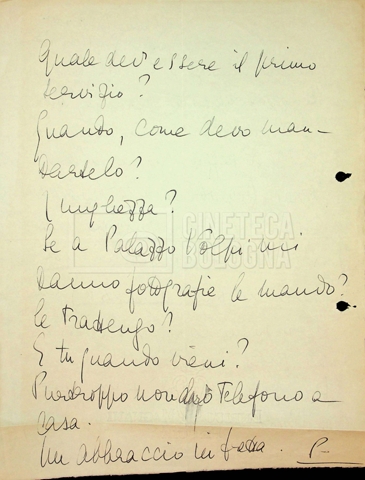 Quale dev'essere il primo
servizio?
Quando, come devo man-
dartelo?
Lunghezza?
Se a Palazzo Volpi mi
CINETECA
BOLOGNA
danno fotografie le mando?
Le trattengo?
E tu quando vieni?
Purtroppo non ho telefono a
casa.
Un abbraccio in fretta. P-